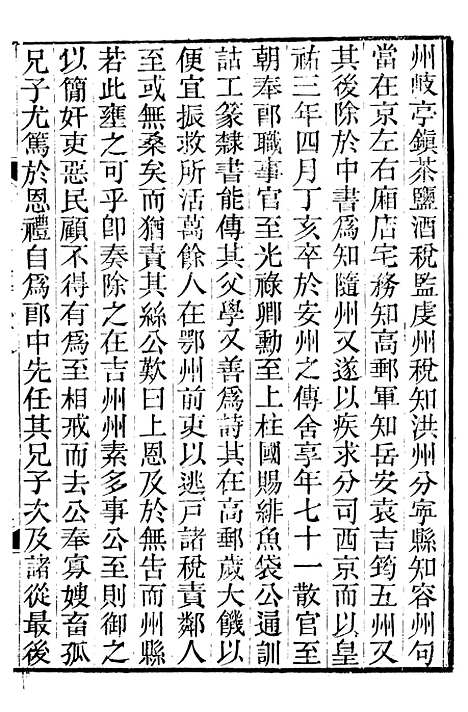 州岐亭鎮茶鹽酒稅監虔州稅知洪州分寧縣知容州句
當在京左右廂店宅務知高郵軍知岳安袁吉筠五州又
其後除於中書爲知隨州又遂以疾求分司西京而以皇
祐三年四月丁亥卒於安州之傳舍享年七十一散官至
朝奉郎職事官至光祿卿勳至上柱國賜緋魚袋公通訓
詁工篆隸書能傳其父學又善爲詩其在高郵歲大饑以
便宜振救所活萬餘人在鄂州前吏以逃戸諸稅責鄰人
至或無桑矣而猶責其絲公歎曰上恩及於無告而州縣
若此壅之可乎卽奏除之在吉州州素多事公至則御之
以簡奸吏惡民顧不得有爲至相戒而去公奉寡嫂畜孤
兄子尤篤於恩禮自爲郎中先任其兄子次及諸從最後